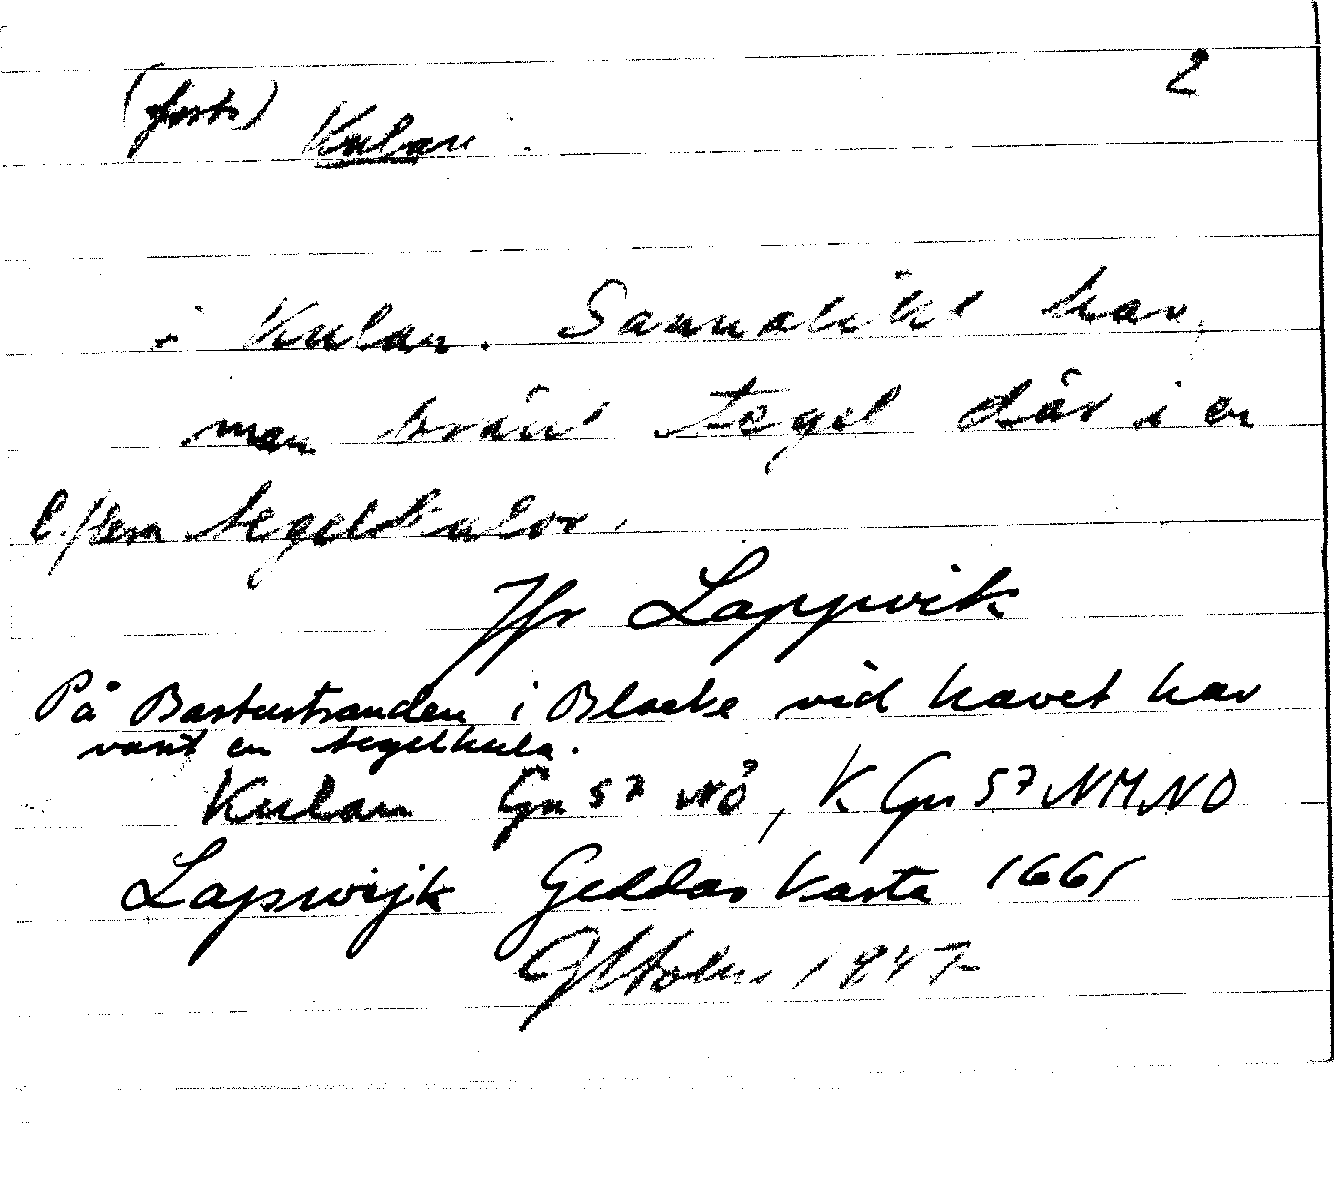 2
(forts) Kulan.
i Kulan. Sannolikt har
man bränt tegel där i en
l. flera tegelkulor.
Jfr Lappvik
På Bastustranden i Blacke vid havet har
varit en tegelkula.
Kulan Gn 57 NÖ, K Gn 57 NMNO
Lapswijk Geddas karta 1661
1947